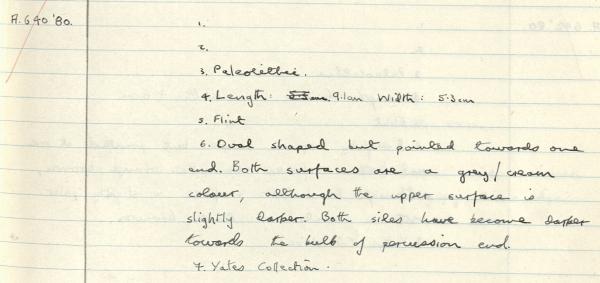 A.640 '80.
1.
2.
3. Paleolithic.
4. Length: 9.1cm Width: 5.3cm
5. Flint
6. Oval shaped but pointed towards one
end. Both surfaces are a grey/cream
colour, although the upper surface is
slightly darker. Both sides have become darker
towards the bulb of percussion end.
7. Yates Collection.